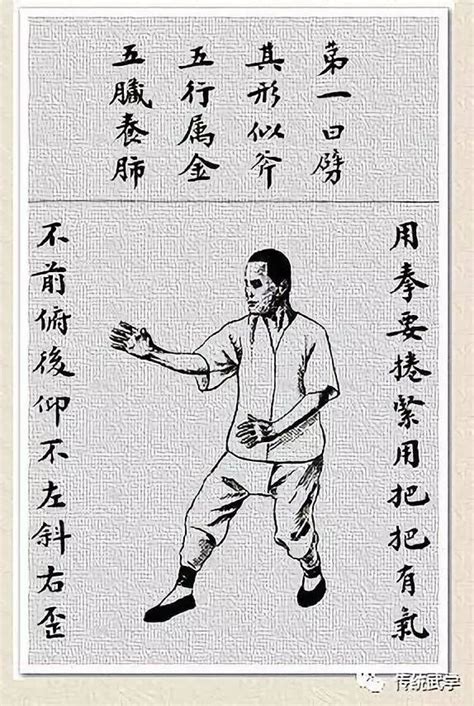 第一曰劈
其形似斧
五行属金
五臟養肺
用拳要捲緊用把把有氣
不前俯後仰不左斜右歪
传统武学